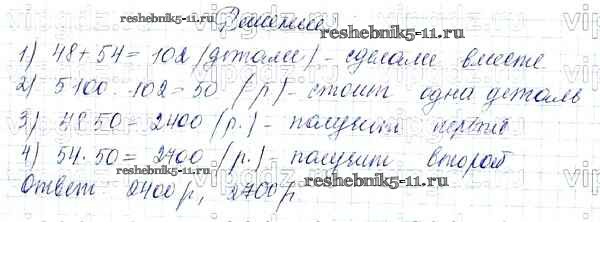 Решение
reshebnik5-11.ru
1) 48 + 54 = 102 (детали) - сделали вместе
2) 5100 : 102 = 50 (р.) - стоит одна деталь
3) 48 50 = 2400 (р.) - получит первый
4) 54 · 50 = 2700 (р.) - получит второй
reshebnik5-11.ru
Ответ: 2400 р, 2700 р.
reshebnik5-11.ru